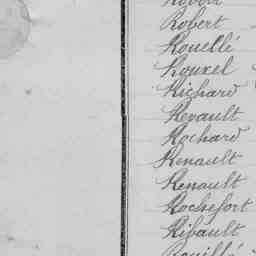 Robert
Rouellé
Rouxel
Richard
Revault
Rochard
Renault
Renault
Rochefort
Ribault
Rouillé